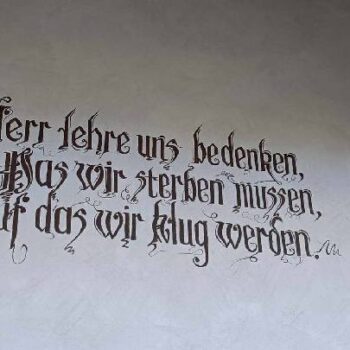 Herr lehre uns bedenken,
Das wir sterben mussen,
uf das wir klug werden.